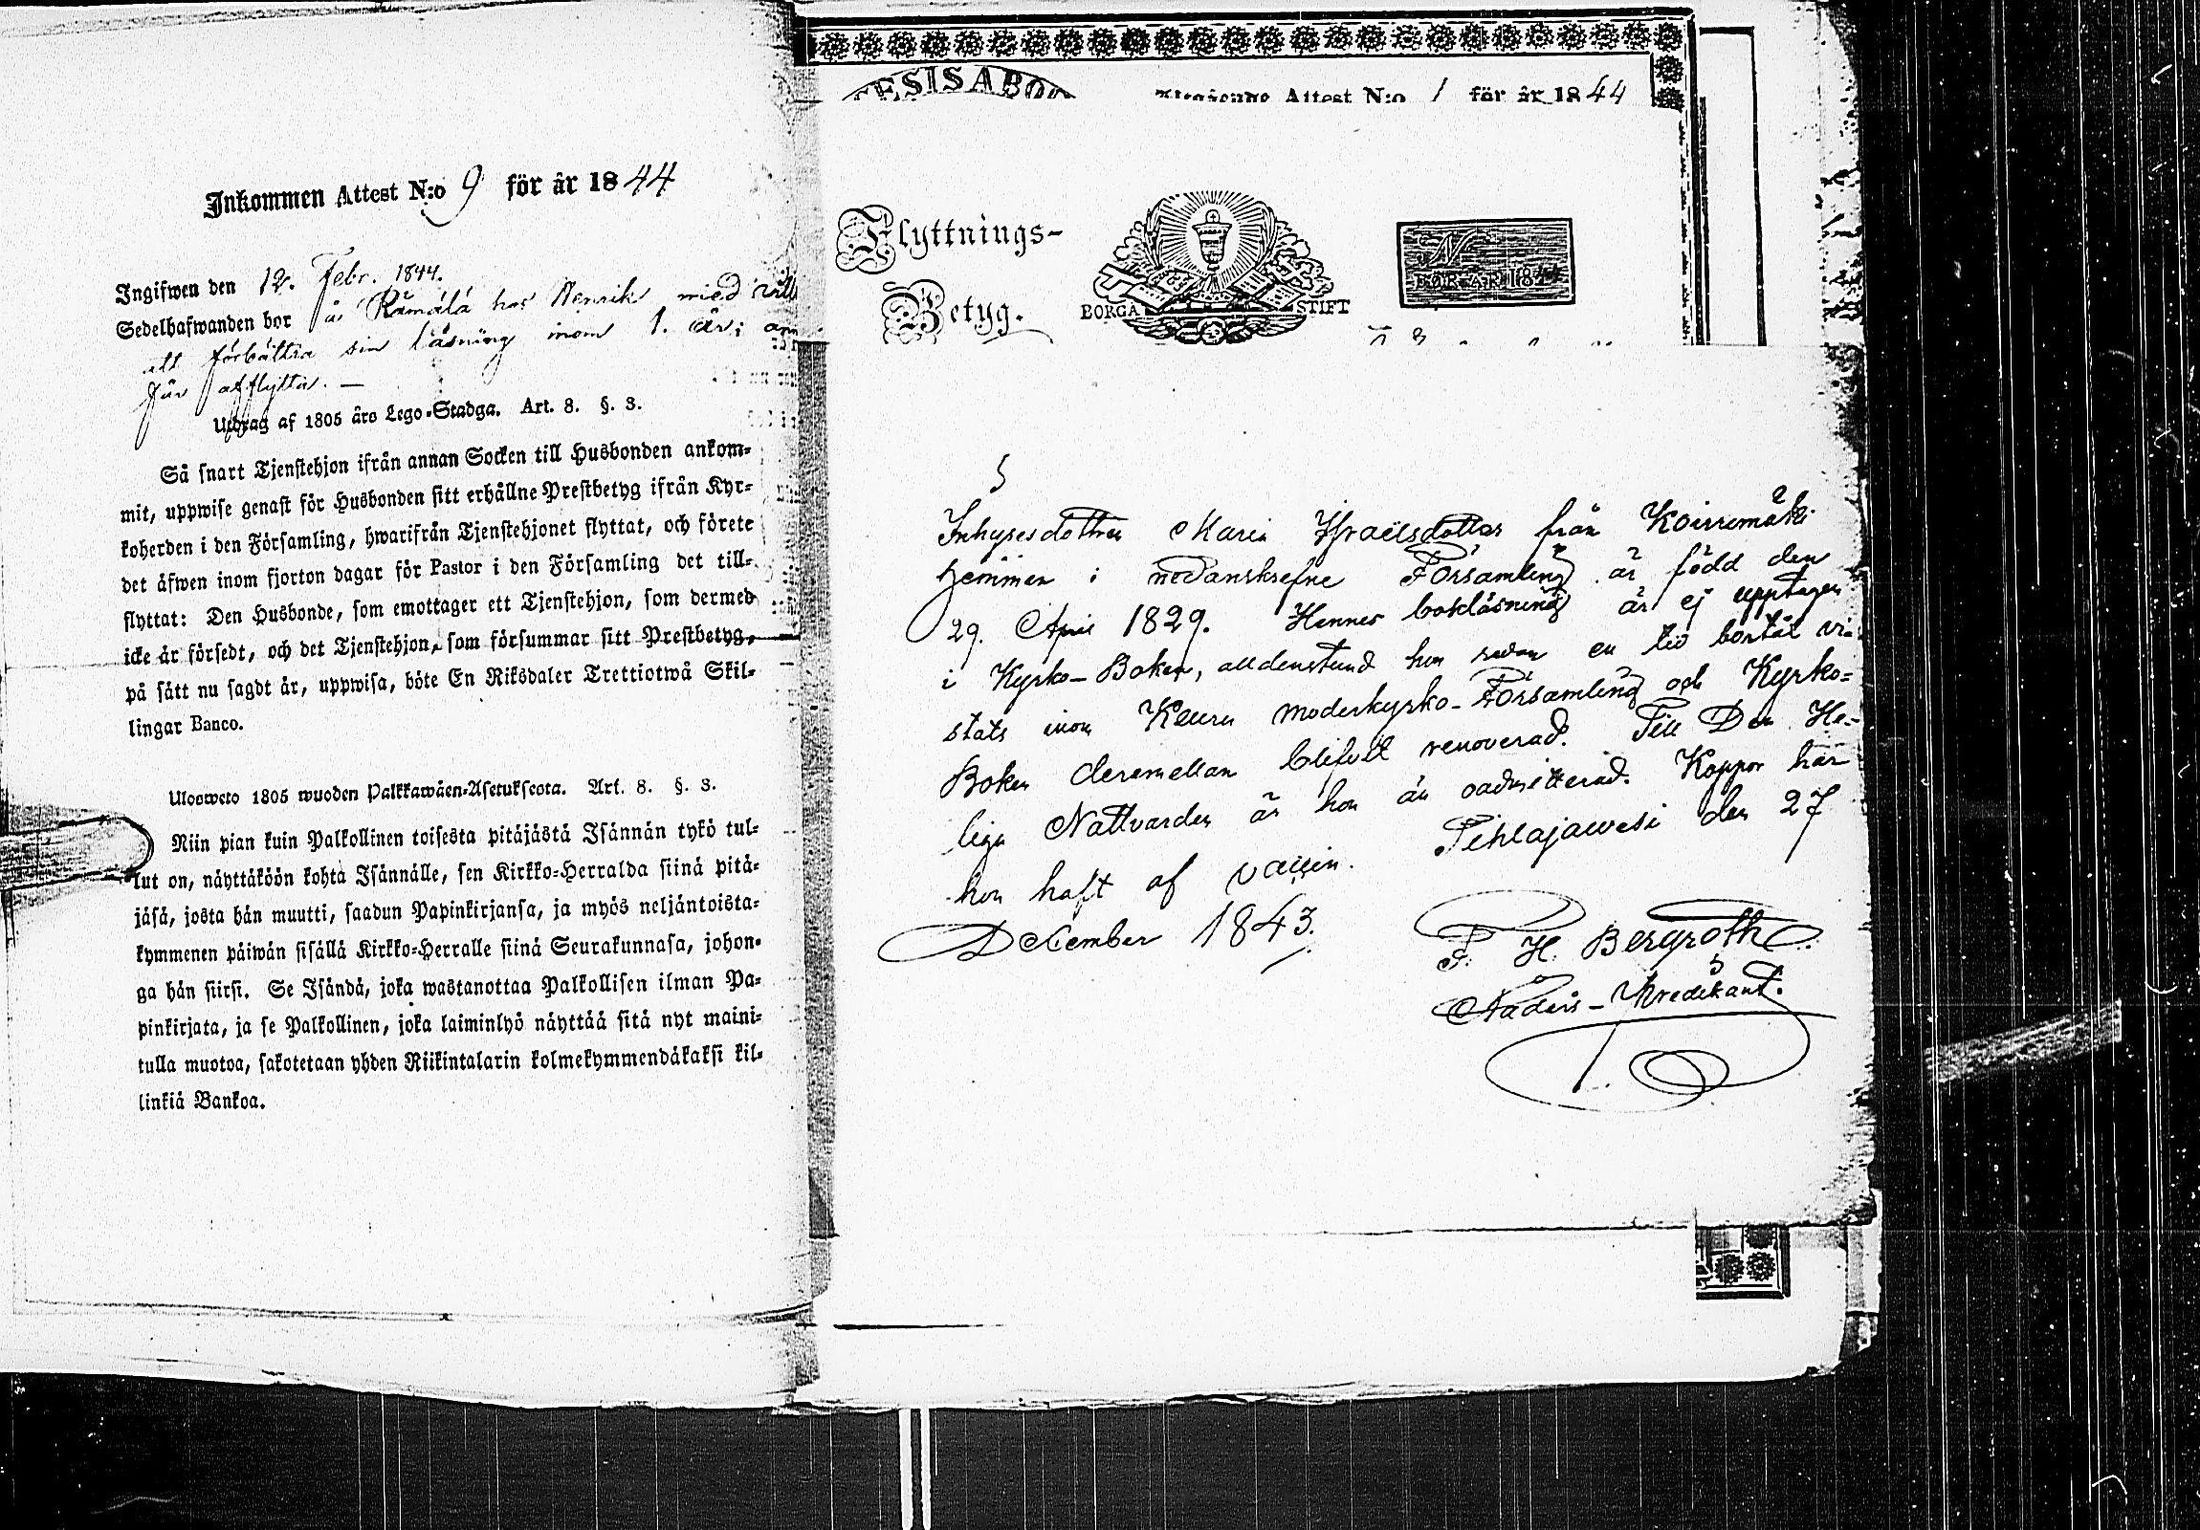 Inkommen Attest N:o 9 för år 1844
Ingifwen den 12. Febr. 1844.
Sedelhafwanden bor å Rämälä hos Henrik med vill
att förbättra sin läsning inom 1. år; ann
får afflytta. —
Utdrag af 1805 års Lego-Stadga. Art. 8. §. 3.
Så snart Tjenstehjon ifrån annan Socken till Husbonden ankom-
mit, uppwise genast för Husbonden sitt erhållne Prestbetyg ifrån Kyr-
koherden i den Församling, hwarifrån Tjenstehjonet flyttat, och förete
det äfwen inom fjorton dagar för Pastor i den Församling det till-
flyttat: Den Husbonde, som emottager ett Tjenstehjon, som dermed
icke är försedt, och det Tjenstehjon, som försummar sitt Prestbetyg,
på sätt nu sagdt är, uppwisa, böte En Riksdaler Trettiotwå Skil-
lingar Banco.
Ulosweto 1805 wuoden Palkkawäen-Asetuksesta. Art. 8. §. 3.
Niin pian kuin Palkollinen toisesta pitäjästä Isännän tykö tul-
lut on, näyttäköön kohta Isännälle, sen Kirkko-Herralda siinä pitä-
jäsä, josta hän muutti, saadun Papinkirjansa, ja myös neljäntoista-
kymmenen päiwän sisällä Kirkko-Herralle siinä Seurakunnasa, johon-
ga hän siirsi. Se Isändä, joka wastanottaa Palkollisen ilman Pa-
pinkirjata, ja se Palkollinen, joka laiminlyö näyttää sitä nyt maini-
tulla muotoa, sakotetaan yhden Riikintalarin kolmekymmendäkaksi kil-
linkiä Bankoa.
ESIS ABO
Attest N:o 1 för år 1844
Flyttnings-
Betyg.
BORGÅ STIFT
N
FÖR ÅR 1844
Inhysesdottren Maria Israëlsdotter från Koirremäki
hemman i nedanskrefne Församling är född den
29. April 1829. Hennes bokläsning är ej upptagen
i Kyrko-Boken, alldenstund hon redan en tid bortåt vi-
stats inom Keuru moderkyrko-Församling och Kyrko=
Boken deremellan blifvit renoverad. Till Den He-
liga Nattvarden är hon än oadmitterad. Koppor har
hon haft af vaccin. Pihlajawesi den 27
December 1843.
F. H. Bergroth.
Nådårs-Predikant.